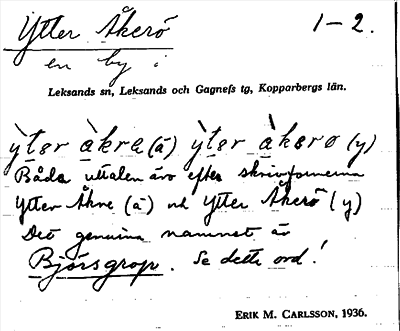 Ytter Åkerö 1–2.
en by i
Leksands sn, Leksands och Gagnefs tg, Kopparbergs län.
ỳter àkre (ä) ỳter àkerö (y)
Båda uttalen äro efter skrivformerna
Ytter Åkre (ä) och Ytter Åkerö (y)
Det genuina namnet är
Björsgrop. Se detta ord!
ERIK M. CARLSSON, 1936.